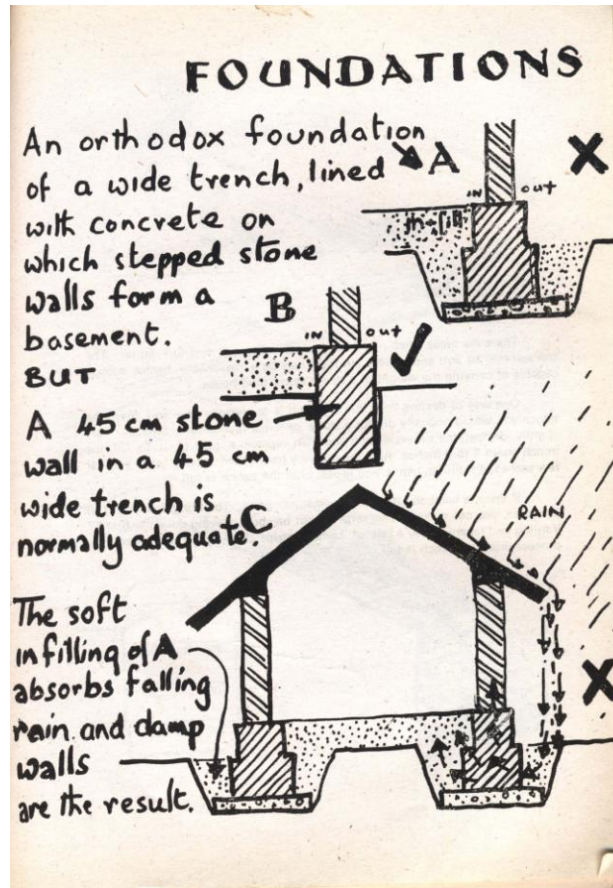 FOUNDATIONS
An orthodox foundation
of a wide trench, lined
with concrete on
which stepped stone
walls form a
basement.
BUT
A 45 cm stone
wall in a 45 cm
wide trench is
normally adequate.
A
IN
out
B
IN
out
C
RAIN
The soft
infilling of A
absorbs falling
rain and damp
walls
are the result.